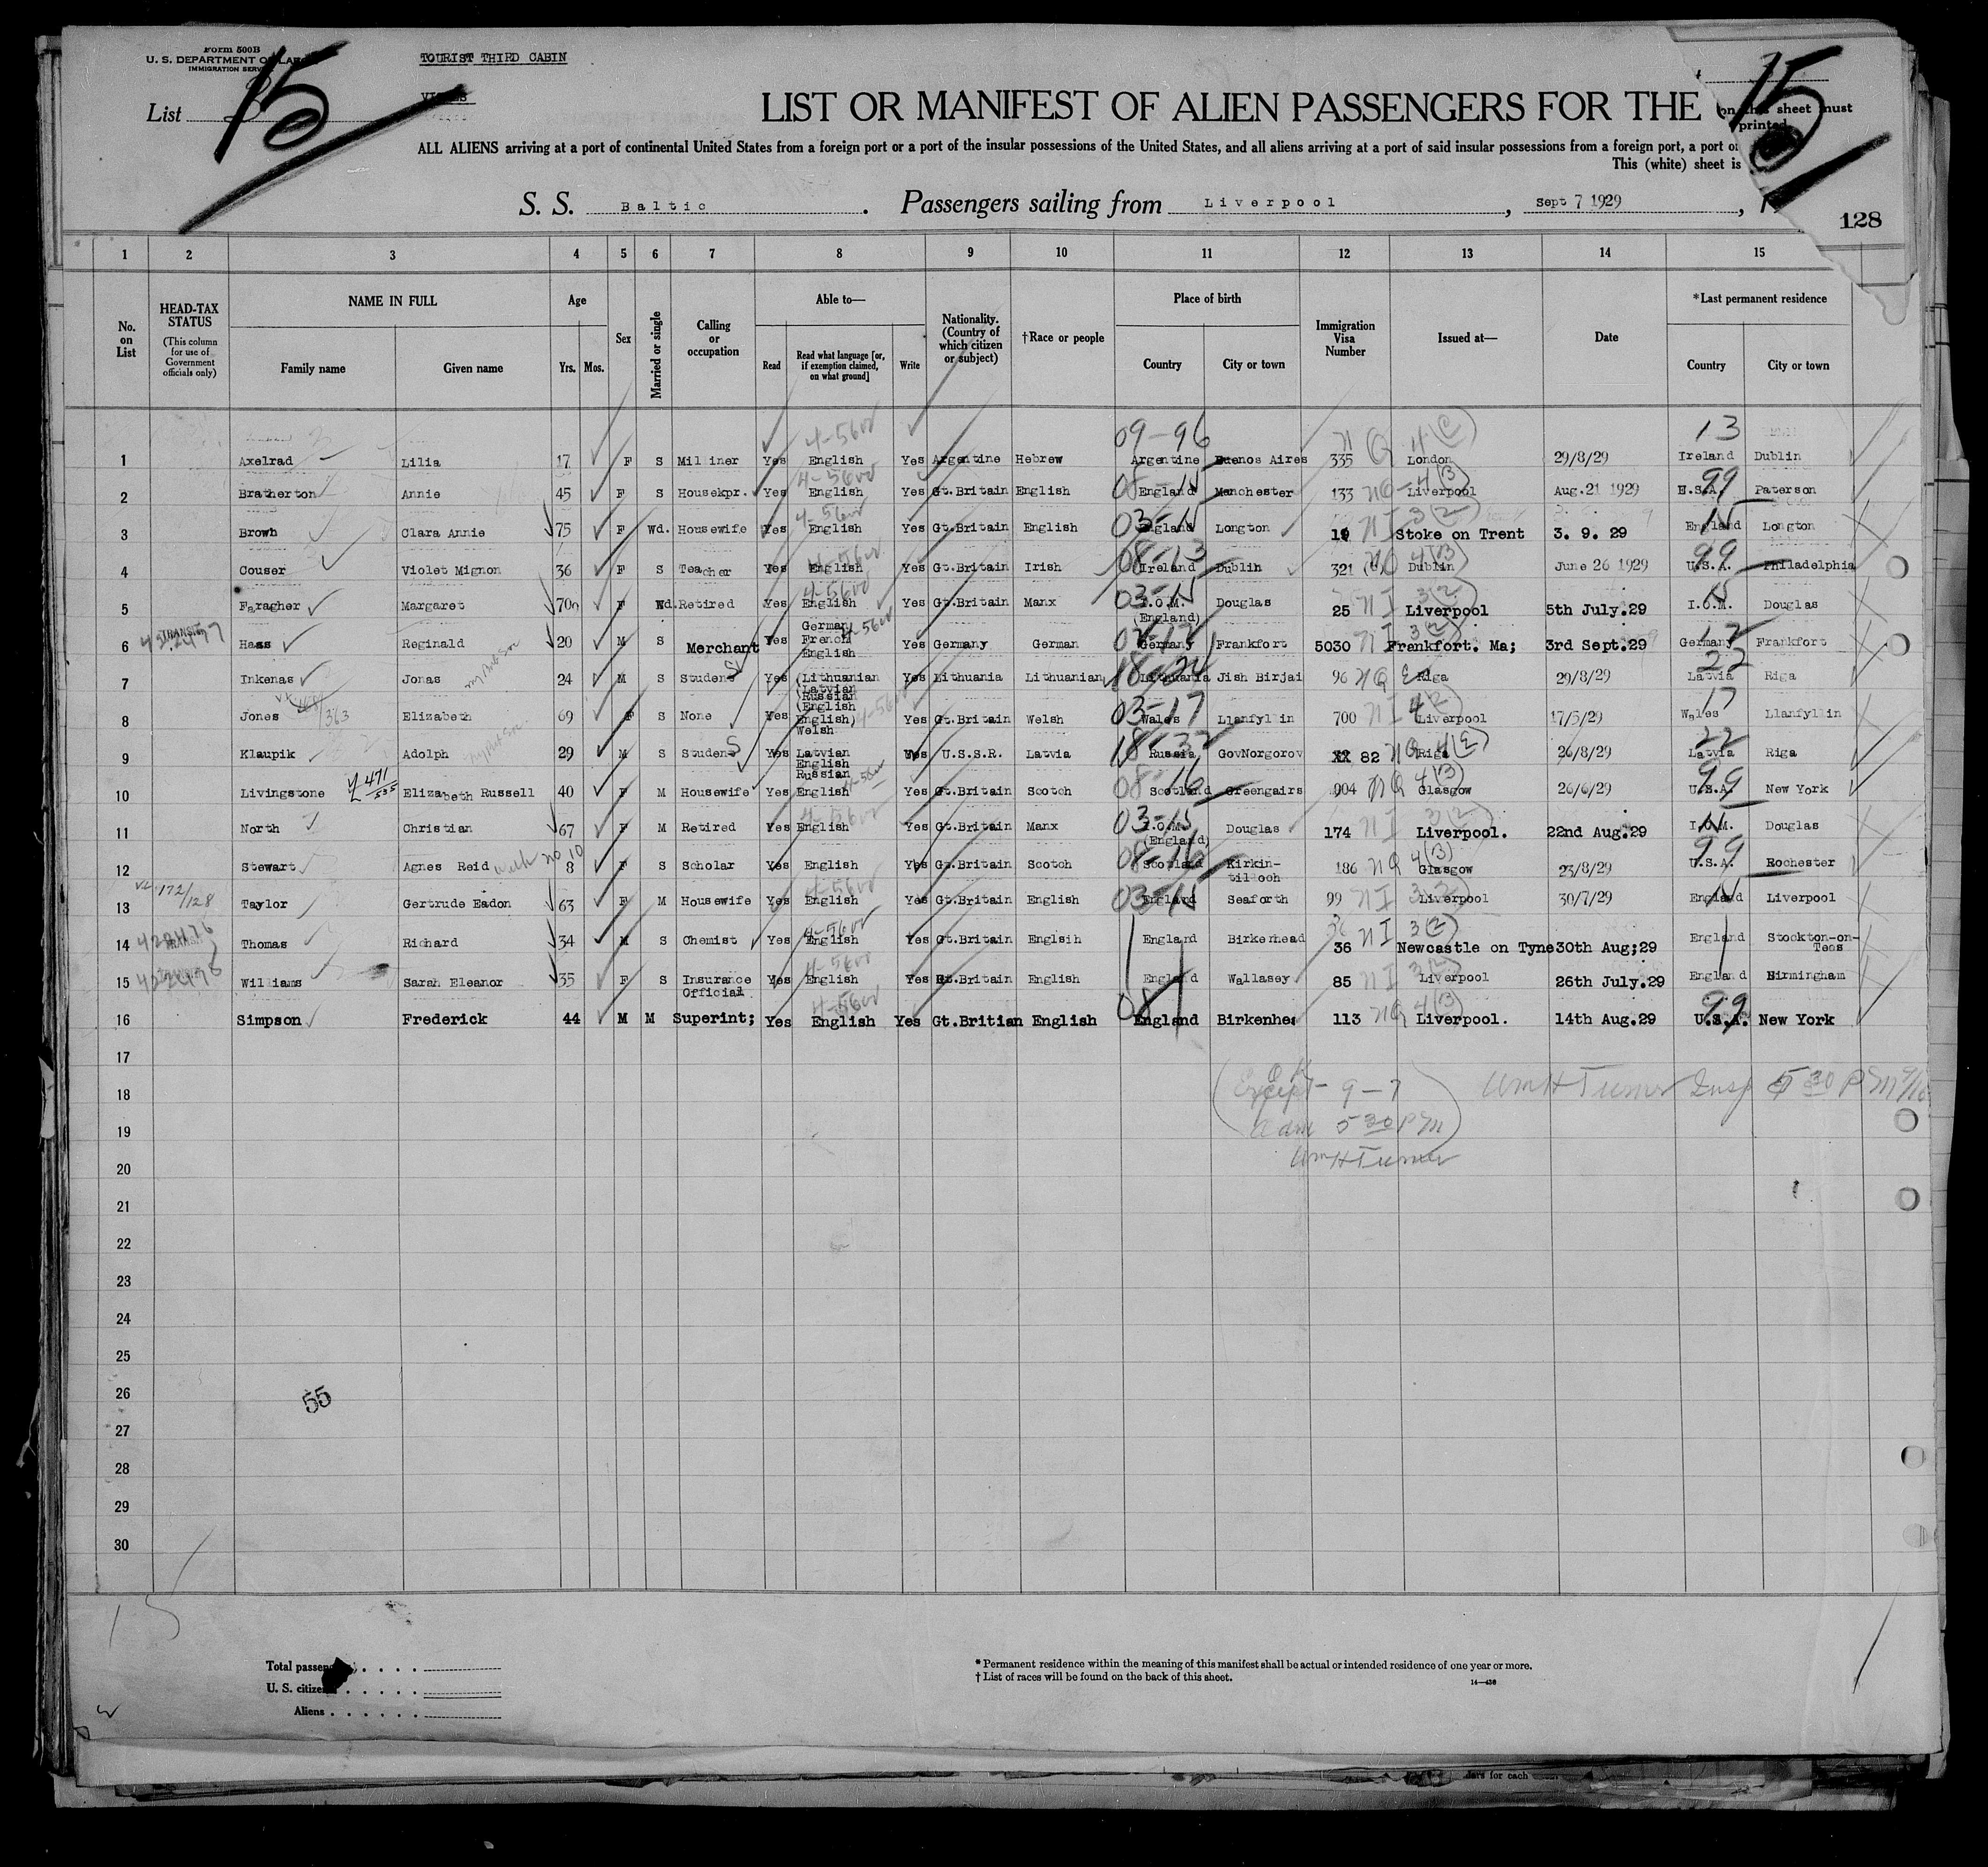 Form 500B
U. S. DEPARTMENT OF LA
IMMIGRATION SERV
TOURIST THIRD CABIN
List
15
15
LIST OR MANIFEST OF ALIEN PASSENGERS FOR THE
on this sheet must
printed
ALL ALIENS arriving at a port of continental United States from a foreign port or a port of the insular possessions of the United States, and all aliens arriving at a port of said insular possessions from a foreign port, a port
This (white) sheet is
S. S. Baltic. Passengers sailing from Liverpool, Sept 7 1929, 1
128
1 2 3 4 5 6 7 8 9 10 11 12 13 14 15
No. on List
HEAD-TAX STATUS
(This column for use of Government officials only)
NAME IN FULL
Family name Given name
Age
Yrs. Mos.
Sex
Married or single
Calling or occupation
Able to—
Read Read what language [or, if exemption claimed, on what ground] Write
Nationality. (Country of which citizen or subject)
†Race or people
Place of birth
Country City or town
Immigration Visa Number
Issued at—
Date
*Last permanent residence
Country City or town
09-96 13
1 Axelrad Lilia 17 F S Milliner Yes English Yes Argentine Hebrew Argentine Buenos Aires 335 London 29/8/29 Ireland Dublin
2 Bratherton Annie 45 F S Housekpr. Yes English Yes Gt.Britain English England Manchester 133 Liverpool Aug.21 1929 U.S.A. Paterson
3 Brown Clara Annie 75 F Wd. Housewife Yes English Yes Gt.Britain English England Longton 19 Stoke on Trent 3. 9. 29 England Longton
4 Couser Violet Mignon 36 F S Teacher Yes English Yes Gt.Britain Irish Ireland Dublin 321 Dublin June 26 1929 U.S.A. Philadelphia
5 Faragher Margaret 70 F Wd. Retired Yes English Yes Gt.Britain Manx I.O.M. (England) Douglas 25 Liverpool 5th July.29 I.O.M. Douglas
6 TRANSIT Haas Reginald 20 M S Merchant Yes German French English Yes Germany German Germany Frankfort 5030 Frankfort. Ma; 3rd Sept.29 Germany Frankfort
7 Inkenas Jonas 24 M S Student Yes (Lithuanian (Latvian Russian (English Yes Lithuania Lithuanian Lithuania Jish Birjai 96 Riga 29/8/29 Latvia Riga
8 Jones Elizabeth 69 F S None Yes English) Welsh Yes Gt.Britain Welsh Wales Llanfyllin 700 Liverpool 17/5/29 Wales Llanfyllin
9 Klaupik Adolph 29 M S Student Yes Latvian English Russian Yes U.S.S.R. Latvia Russia GovNorgorov XX 82 Riga 26/8/29 Latvia Riga
10 Livingstone Elizabeth Russell 40 F M Housewife Yes English Yes Gt.Britain Scotch Scotland Greengairs 904 Glasgow 26/6/29 U.S.A. New York
11 North Christian 67 F M Retired Yes English Yes Gt.Britain Manx I.O.M. (England) Douglas 174 Liverpool. 22nd Aug.29 I.O.M. Douglas
12 Stewart Agnes Reid with no 10 8 F S Scholar Yes English Yes Gt.Britain Scotch Scotland Kirkin-tilloch 186 Glasgow 23/8/29 U.S.A. Rochester
13 172/128 Taylor Gertrude Eadon 63 F M Housewife Yes English Yes Gt.Britain English England Seaforth 99 Liverpool 30/7/29 England Liverpool
14 Thomas Richard 34 M S Chemist Yes English Yes Gt.Britain Englsih England Birkenhead 36 Newcastle on Tyne 30th Aug;29 England Stockton-on-Tees
15 Williams Sarah Eleanor 35 F S Insurance Official Yes English Yes Gt.Britain English England Wallasey 85 Liverpool 26th July.29 England Birmingham
16 Simpson Frederick 44 M M Superint; Yes English Yes Gt.Britian English England Birkenhe 113 Liverpool. 14th Aug.29 U.S.A. New York
17
18
(Except - 9 - 7) Wm H Turner Insp 5 30 PM
19
adm 5 30 PM
20
Wm H Turner
21
22
23
24
25
26
55
27
28
29
30
15
Total passen . . . .
U. S. citize . . . . .
Aliens . . . . . .
* Permanent residence within the meaning of this manifest shall be actual or intended residence of one year or more.
† List of races will be found on the back of this sheet.
14—436